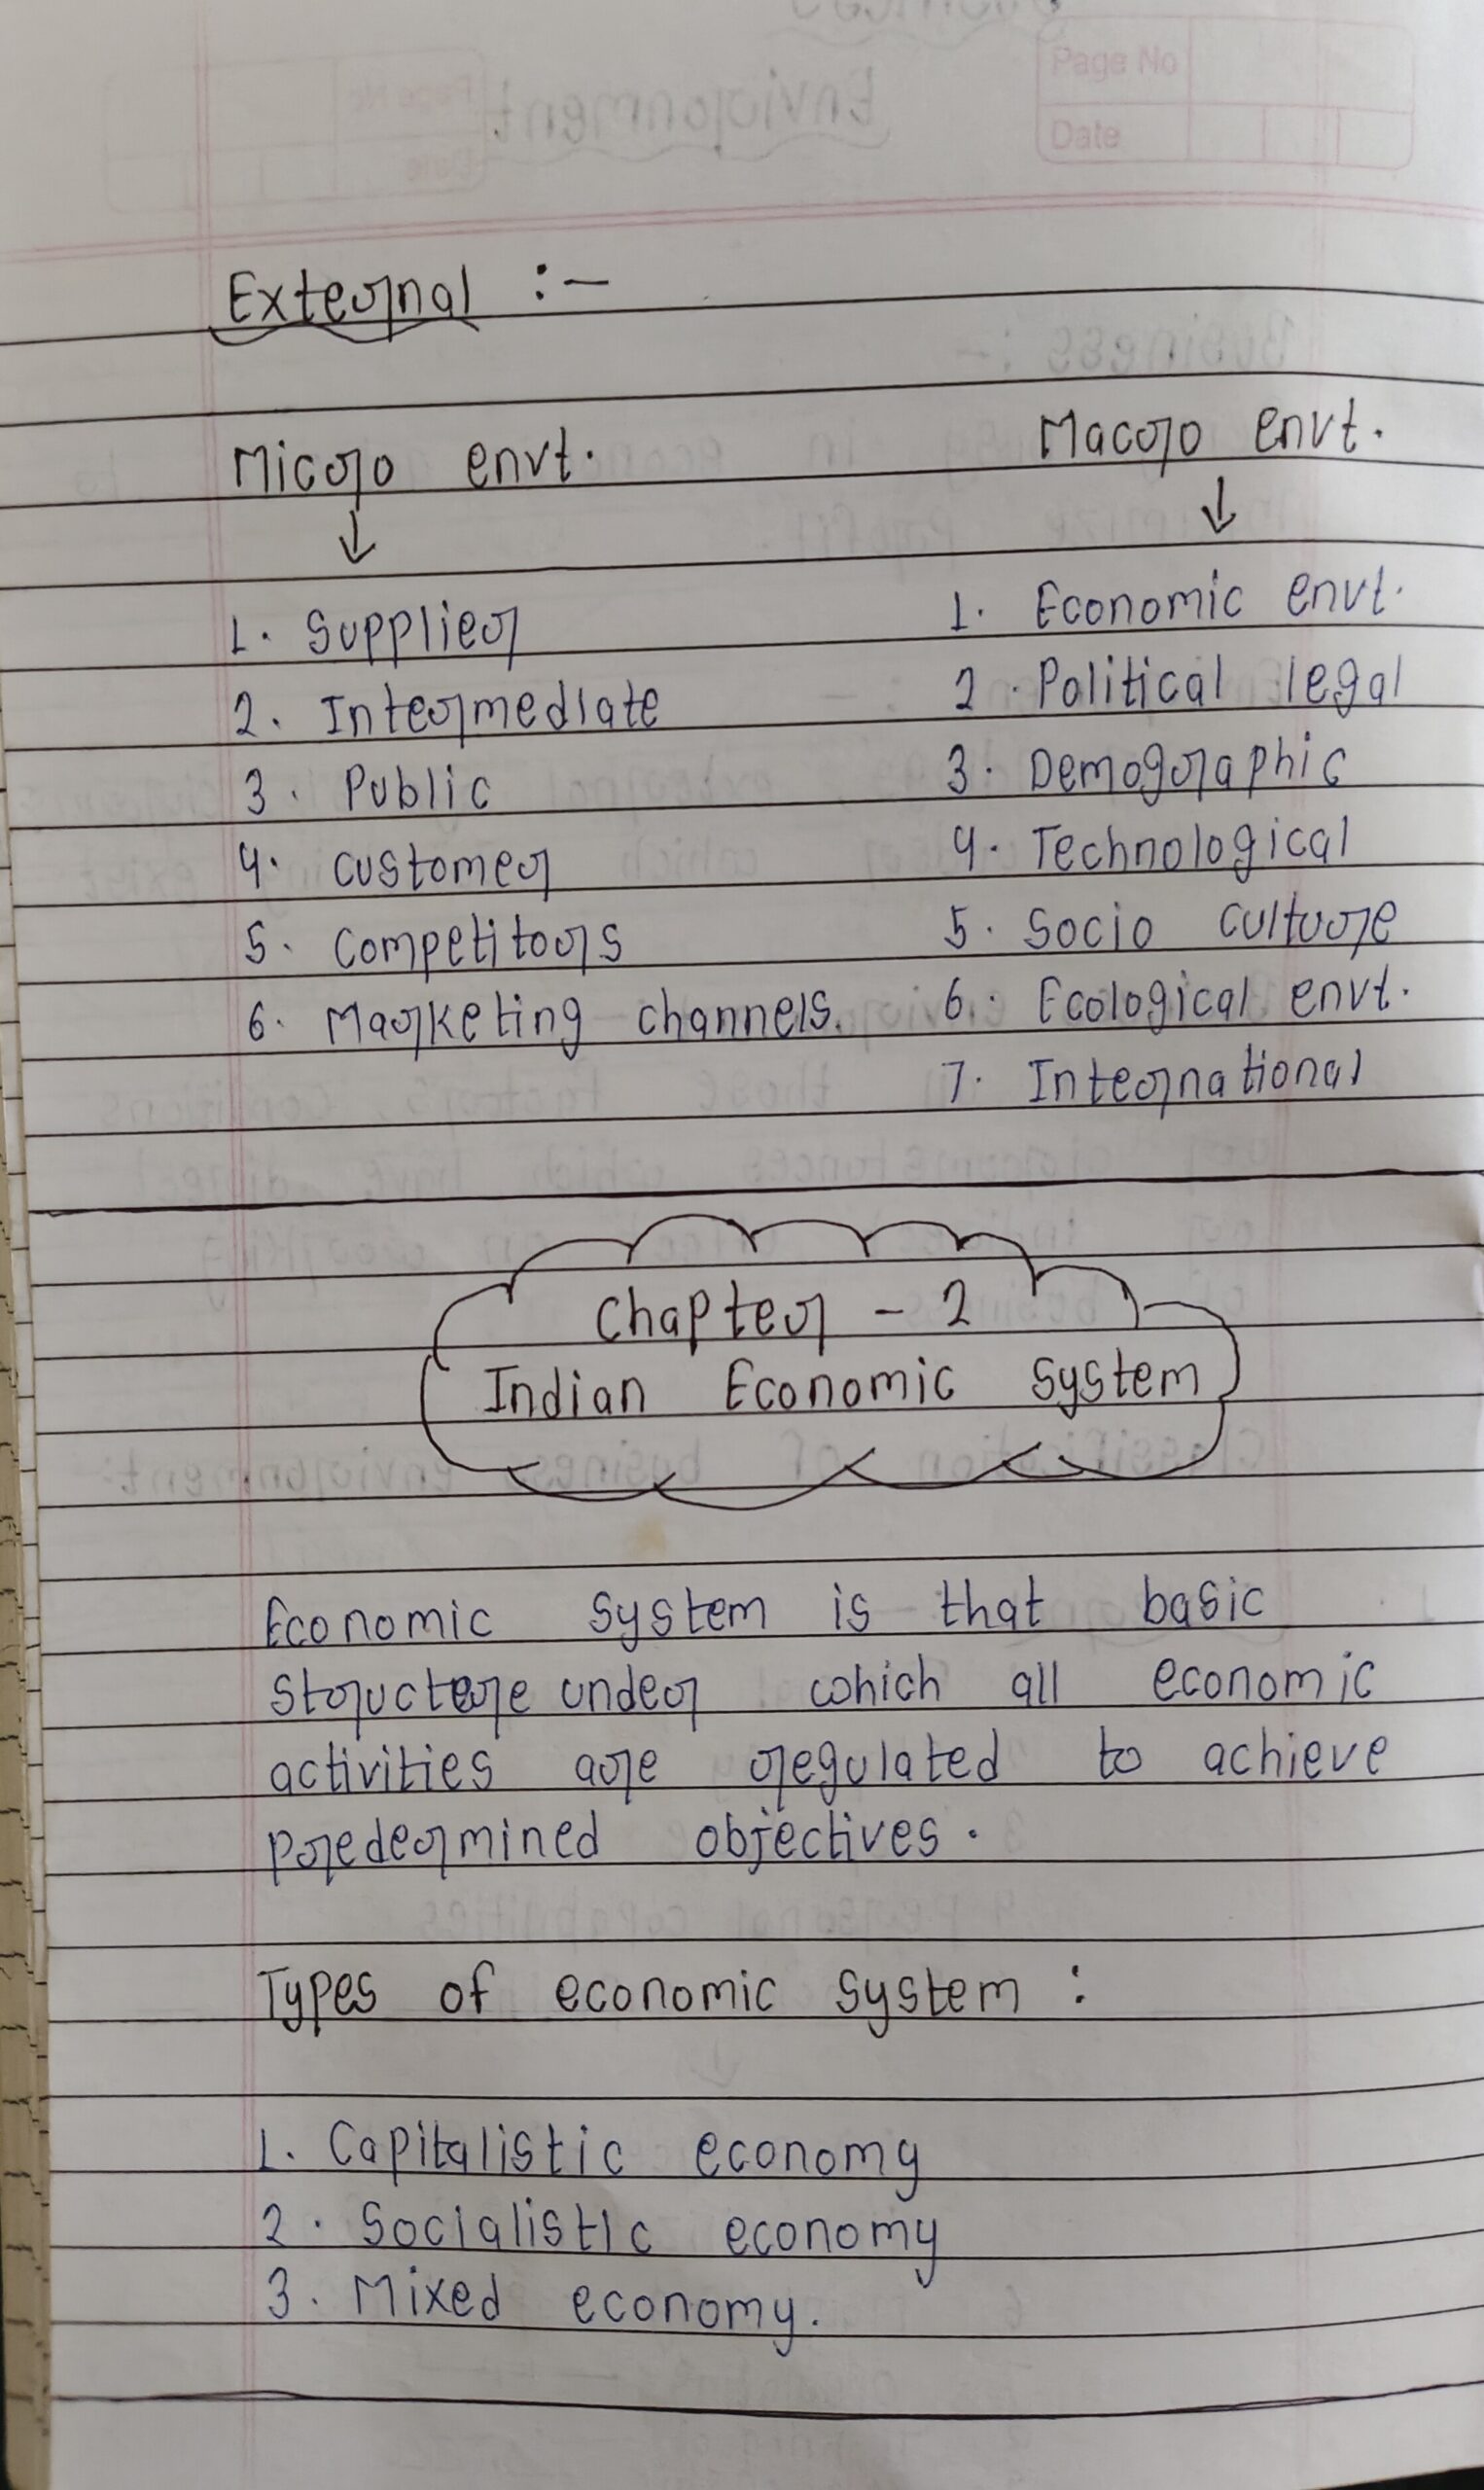 Page No
Date
External :-
Micro envt.	Macro envt.
↓	↓
1. Supplier	1. Economic envt.
2. Intermediate	2. Political legal
3. Public	3. Demographic
4. customer	4. Technological
5. Competitors	5. Socio culture
6. Marketing channels.	6. Ecological envt.
7. International
Chapter - 2
Indian Economic System
Economic system is that basic
structere under which all economic
activities are regulated to achieve
predermined objectives.
Types of economic system :
1. Capitalistic economy
2. Socialistic economy
3. Mixed economy.